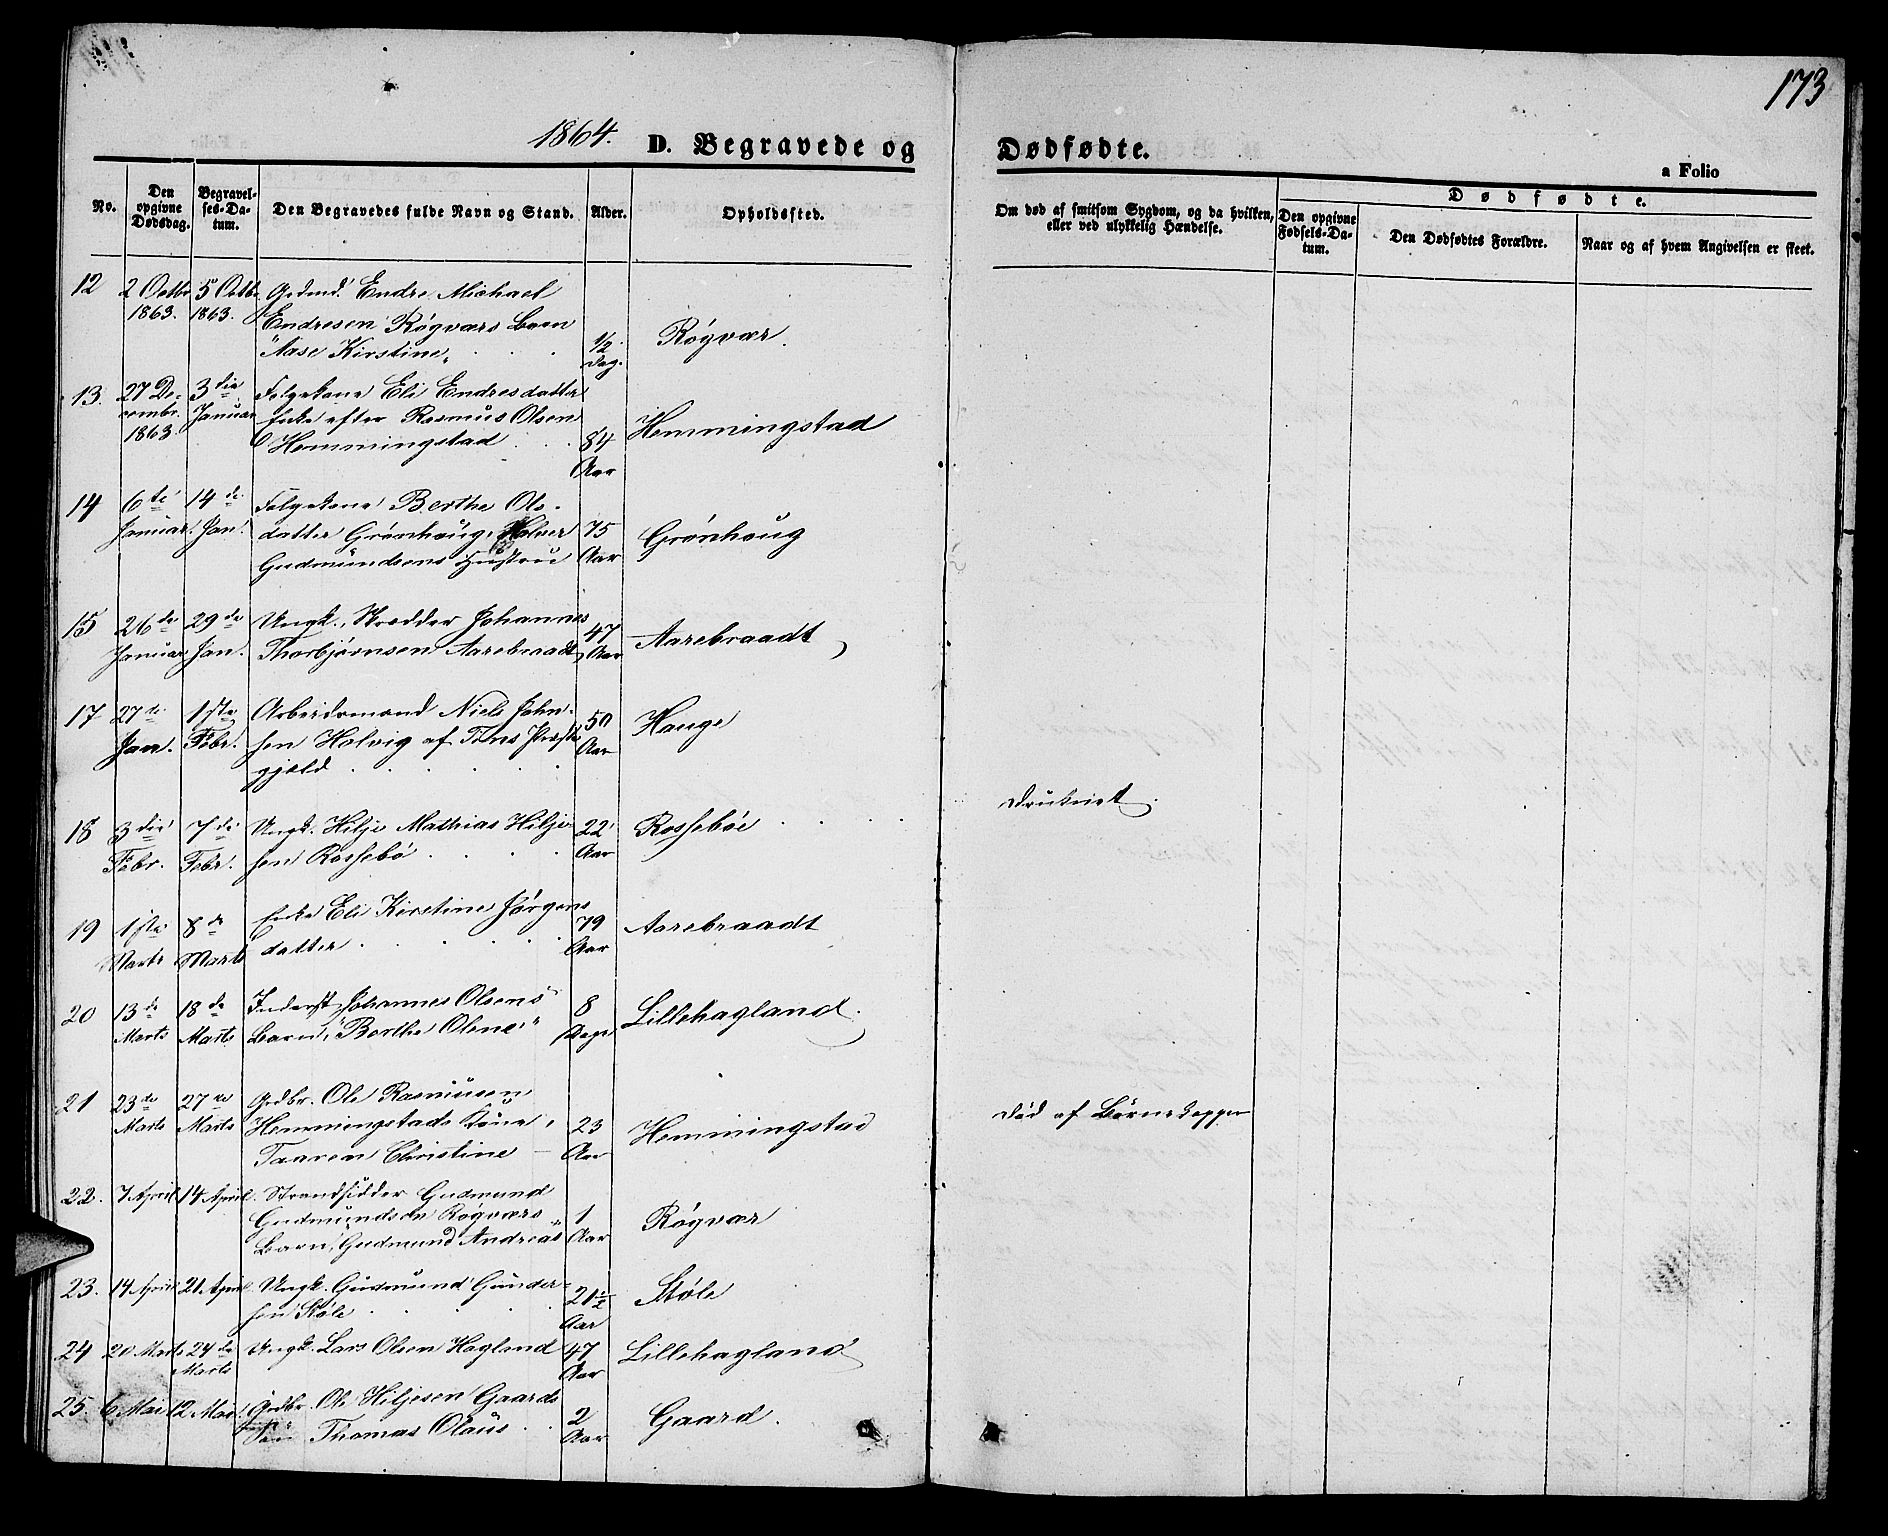 173
1864. D. Begravede og Dødfødte.
a Folio
No.
Den opgivne Dødsdag.
Begravelses-Datum.
Den Begravedes fulde Navn og Stand.
Alder.
Opholdssted.
Om død af smitsom Sygdom, og da hvilken, eller ved ulykkelig Hændelse.
Dødfødte.
Den opgivne Fødsels-Datum.
Den Dødfødtes Forældre.
Naar og af hvem Angivelsen er skeet.
12 2 Octbr 5 Octbr Grdmd. Endre Michael
1863. 1863. Endresen Røgværs Barn
"Aase Kirstine" 1/2 Dag. Røgvær.
13. 27 De- 3die Folgekone Eli Endresdatter
cembr. Januar Enke efter Rasmus Olsen
1863. Hemmingstad 84 Aar Hemmingstad
14 6te 14de Folgekone Berthe Ols-
Januar Jan. datter Grønhoug, Halvor 75 Grønhoug
Gudmundsens Hustrue Aar
15 26de 29de Ungk. Skrædder Johannes 47 Aarebraadt
Januar Jan. Thorbjørnsen Aarebraadt, Aar
17 27de 1ste Arbeidsmand Niels John- 50 Hauge
Jan. Febr. sen Halvig af Tins Præste Aar
gjeld
18 3die 7de Ungk. Hilje Mathias Hilje- 22 Rossebøe druknet.
Febr. Febr. sen Rossebø Aar
19 1ste 8de Enke Eli Kirstine Jørgens 79 Aarebraadt
Marts Marts datter Aar
20 13de 18de Inderst Johannes Olsens 8 Lillehagland.
Marts Marts Barn, "Berthe Oline" Dage
21 23de 27de Grdbr. Ole Rasmusen
Marts Marts Hemmingstads Kone, 23 Hemmingstad Død af Børnekopper
Taaren Christine Aar
22. 7 April 14 April. Strandsidder Gudmund
Gudmundsen Røgværs 1 Røgvær
Barn, "Gudmund Andreas" Aar
23. 14 April 21 April Ungk. Gudmund Gunder- 21 1/2 Støle
sen Støle Aar
24 20 Marts 24de Ungk. Lars Olsen Hagland 47 Lillehagland
Marts Aar
25. 6 Mai 12 Mai Grdbr. Ole Hiljesen Gaards
Søn "Thomas Olaus 2 Aar Gaard.